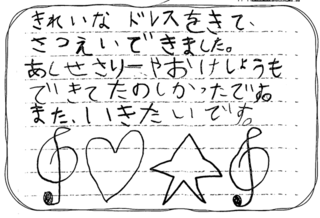 きれいな ドレスをきて、
さつえいできました。
あしせさりーやおけしょうも
できてたのしかったです。
また、いきたいです。